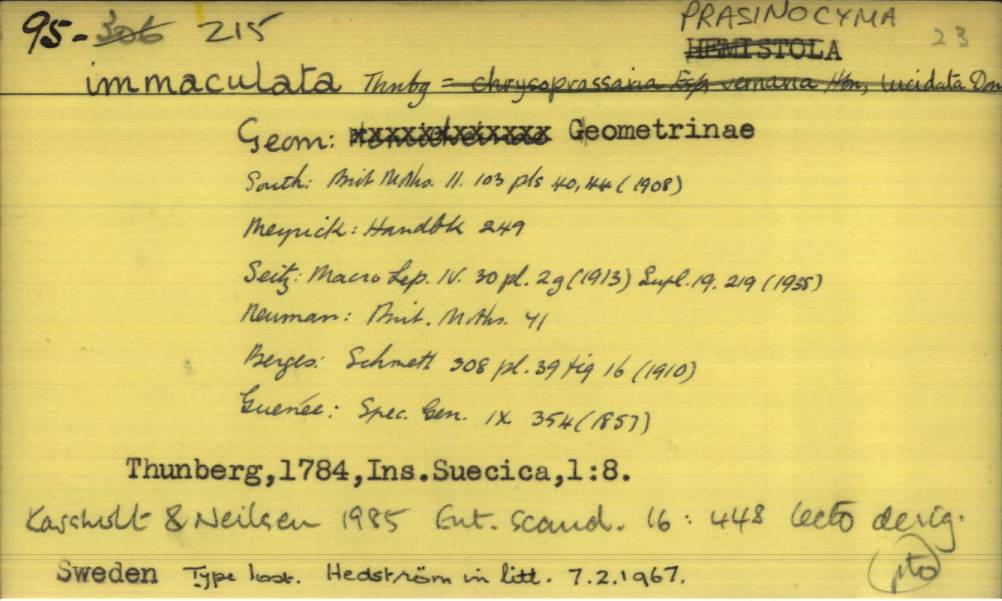 95-306 215 PRASINOCYMA 23
HEMISTOLA
immaculata Thnbg = chrysoprassaria Esp, vernaria Hbn, lucidata Don
Geom: Geometrinae
South: Brit Moths. II. 103 pls 40, 44 (1908)
Meyrick: Handbk 249
Seitz: Macro Lep. IV. 30 pl. 2g (1913) Supl. 19. 219 (1935)
Neuman: Brit. Moths. 71
Berges: Schmett 308 pl. 39 fig 16 (1910)
Guenée: Spec. Gen. IX 354 (1857)
Thunberg,1784,Ins.Suecica,1:8.
Karsholt & Neilsen 1985 Ent. Scand. 16: 448 lecto desig.
Sweden Type lost. Hedström in litt. 7.2.1967. pto